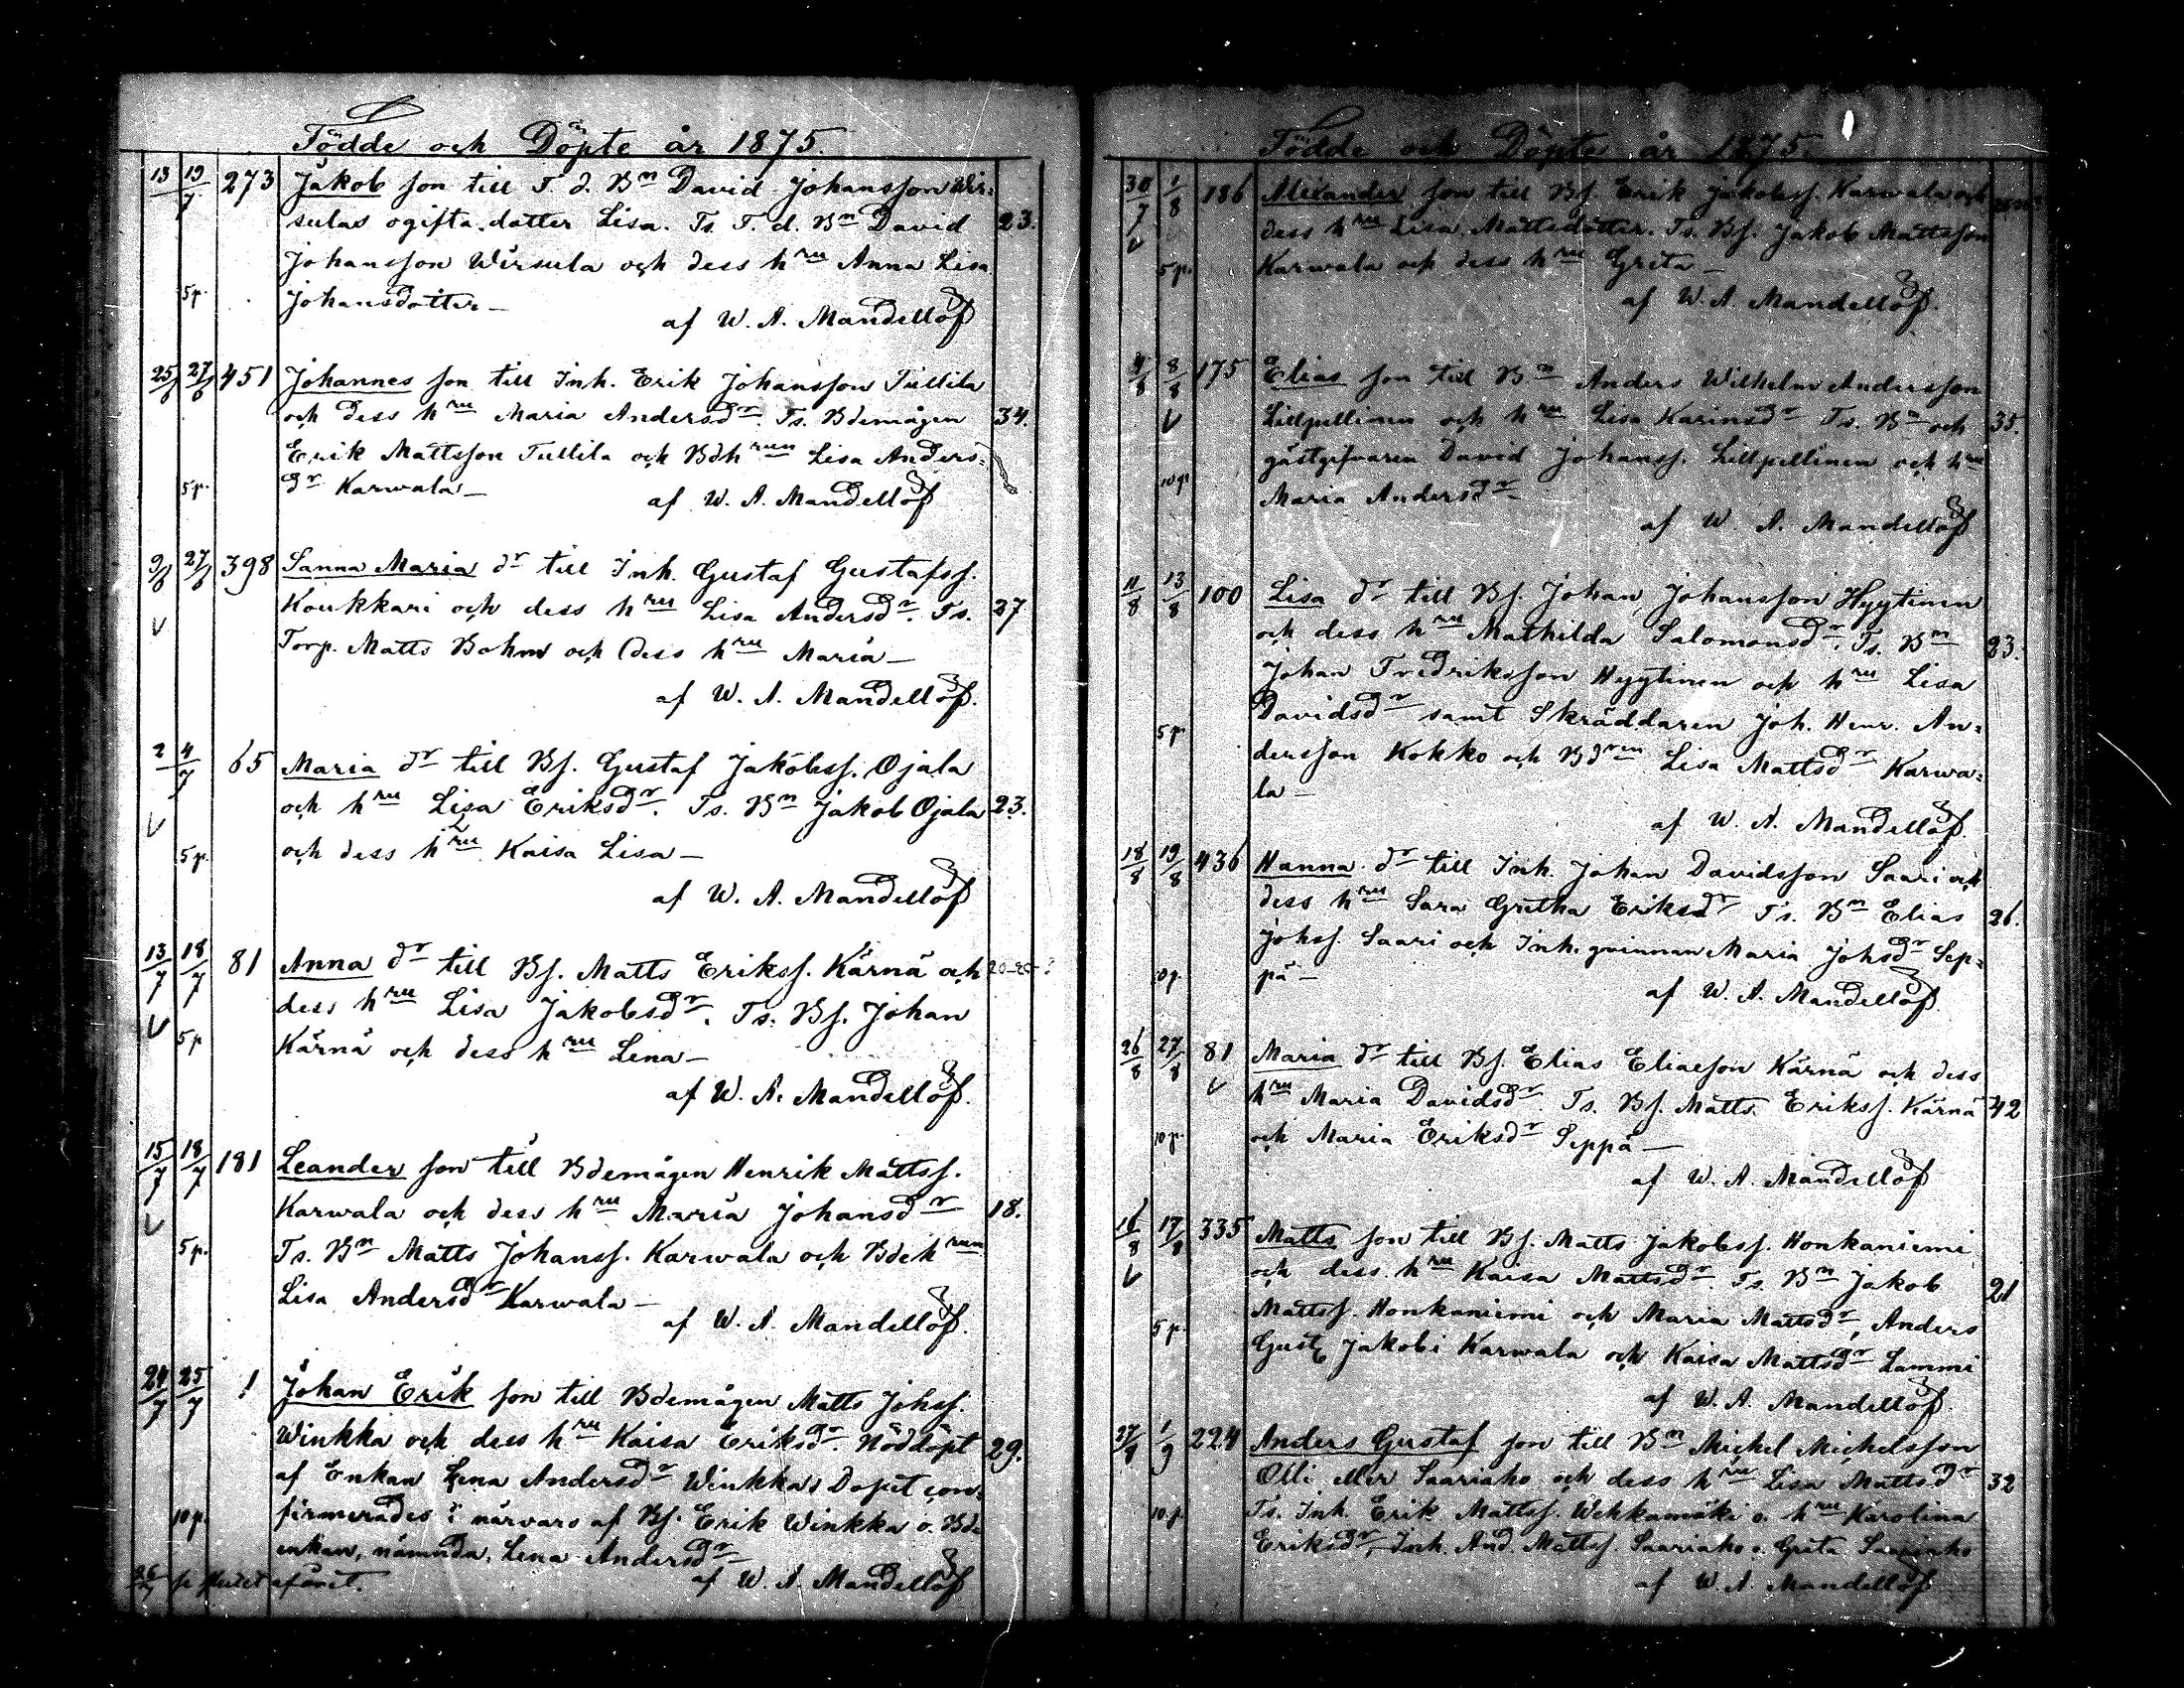 Födde och Döpte år 1875.
13 19/7 273 Jakob son till T. d. Bm David Johansson Wir=
sulas ogifta dotter Lisa. Ts. T. d. Bm David 23.
Johansson Wirsula och dess hru Anna Lisa
5 p. Johansdotter —
af W. A. Mandellöf
25/6 27/6 451 Johannes son till Inh. Erik Johansson Tullila
och dess hru Maria Andersdr. Ts. Bdemågen 34.
Erik Mattsson Tullila och Bdhrun Lisa Anders=
5 p. dr Karwala —
af W. A. Mandellöf
9/6 27/6 398 Sanna Maria dr till Inh. Gustaf Gustafss.
Koukkari och dess hru Lisa Andersdr. Ts. 27
Torp. Matts Bohm och dess hru Maria —
af W. A. Mandellöf.
2 4/7 65 Maria dr till Bs. Gustaf Jakobss. Ojala
och hru Lisa Eriksdr. Ts. Bm Jakob Ojala 23.
5 p. och dess hru Kaisa Lisa —
af W. A. Mandellöf
13/7 18/7 81 Anna dr till Bs. Matts Erikss. Kärnä och 20-25
dess hru Lisa Jakobsdr. Ts. Bs. Johan
5 p Kärnä och dess hru Lena —
af W. A. Mandellöf.
15/7 18/7 181 Leander son till Bdemågen Henrik Mattss.
Karwala och dess hru Maria Johansdr 18.
5 p. Ts. Bm Matts Johanss. Karwala och Bdehrun
Lisa Andersdr Karwala —
af W. A. Mandellöf.
24/7 25/7 1 Johan Erik son till Bdemågen Matts Johss.
Winkka och dess hru Kaisa Eriksdr. Nöddöpt 29.
af Enkan Lena Andersdr Winkka, Dopet con=
10 p. firmerades i närvaro af Bs. Erik Winkka o. Bde
enkan, nämnda, Lena Andersdr
af W. A. Mandellöf
slutet af året.
Födde och Döpte år 1875.
30/7 1/8 186 Alexander son till Bs. Erik Jakobss. Karwala och
dess hru Lisa Mattsdotter. Ts. Bs. Jakob Mattsson
5 p. Karwala och dess hru Greta —
af W. A. Mandellöf.
4/8 8/8 175 Elias son till Bm Anders Wilhelm Andersson
Lillpellinen och hru Lisa Karinsdr Ts. Bm och 35.
gästgifvaren David Johanss. Lillpellinen och hru
10 p Maria Andersdr
af W. A. Mandellöf
11/8 13/8 100 Lisa dr till Bs. Johan Johansson Hyytinen
och dess hru Mathilda Salomonsdr. Ts. Bm 23.
Johan Fredriksson Hyytinen och hru Lisa
5 p. Davidsdr samt Skräddaren Joh. Henr. An=
dersson Kokko och Bdren Lisa Mattsdr Karwa=
la —
af W. A. Mandellöf.
18/8 19/8 436 Hanna dr till Inh. Johan Davidsson Saari och
dess hru Sara Gretha Eriksdr Ts. Bm Elias 26.
Johss. Saari och Inh. qvinnan Maria Johsdr Sep=
10 p. pä —
af W. A. Mandellöf.
26/8 27/8 81 Maria dr till Bs. Elias Eliasson Kärnä och dess
hru Maria Davidsdr. Ts. Bs. Matts Erikss. Kärnä 42
10 p. och Maria Eriksdr Seppä —
af W. A. Mandellöf
16/8 17/8 335 Matts son till Bs. Matts Jakobss. Honkaniemi
och dess hru Kaisa Mattsdr. Ts. Bm Jakob 21
5 p. Mattss. Honkaniemi och Maria Mattsdr, Anders
Gust. Jakobi Karwala och Kaisa Mattsdr Lammi
af W. A. Mandellöf.
27/8 1/9 224 Anders Gustaf son till Bm Michel Michelsson
Olli eller Saariaho och dess hru Lisa Mattsdr 32
10 p. Ts. Inh. Erik Mattss. Wehkamäki o. hru Karolina
Eriksdr, Inh. And. Mattss. Saariaho o. Greta Saariaho
af W. A. Mandellöf